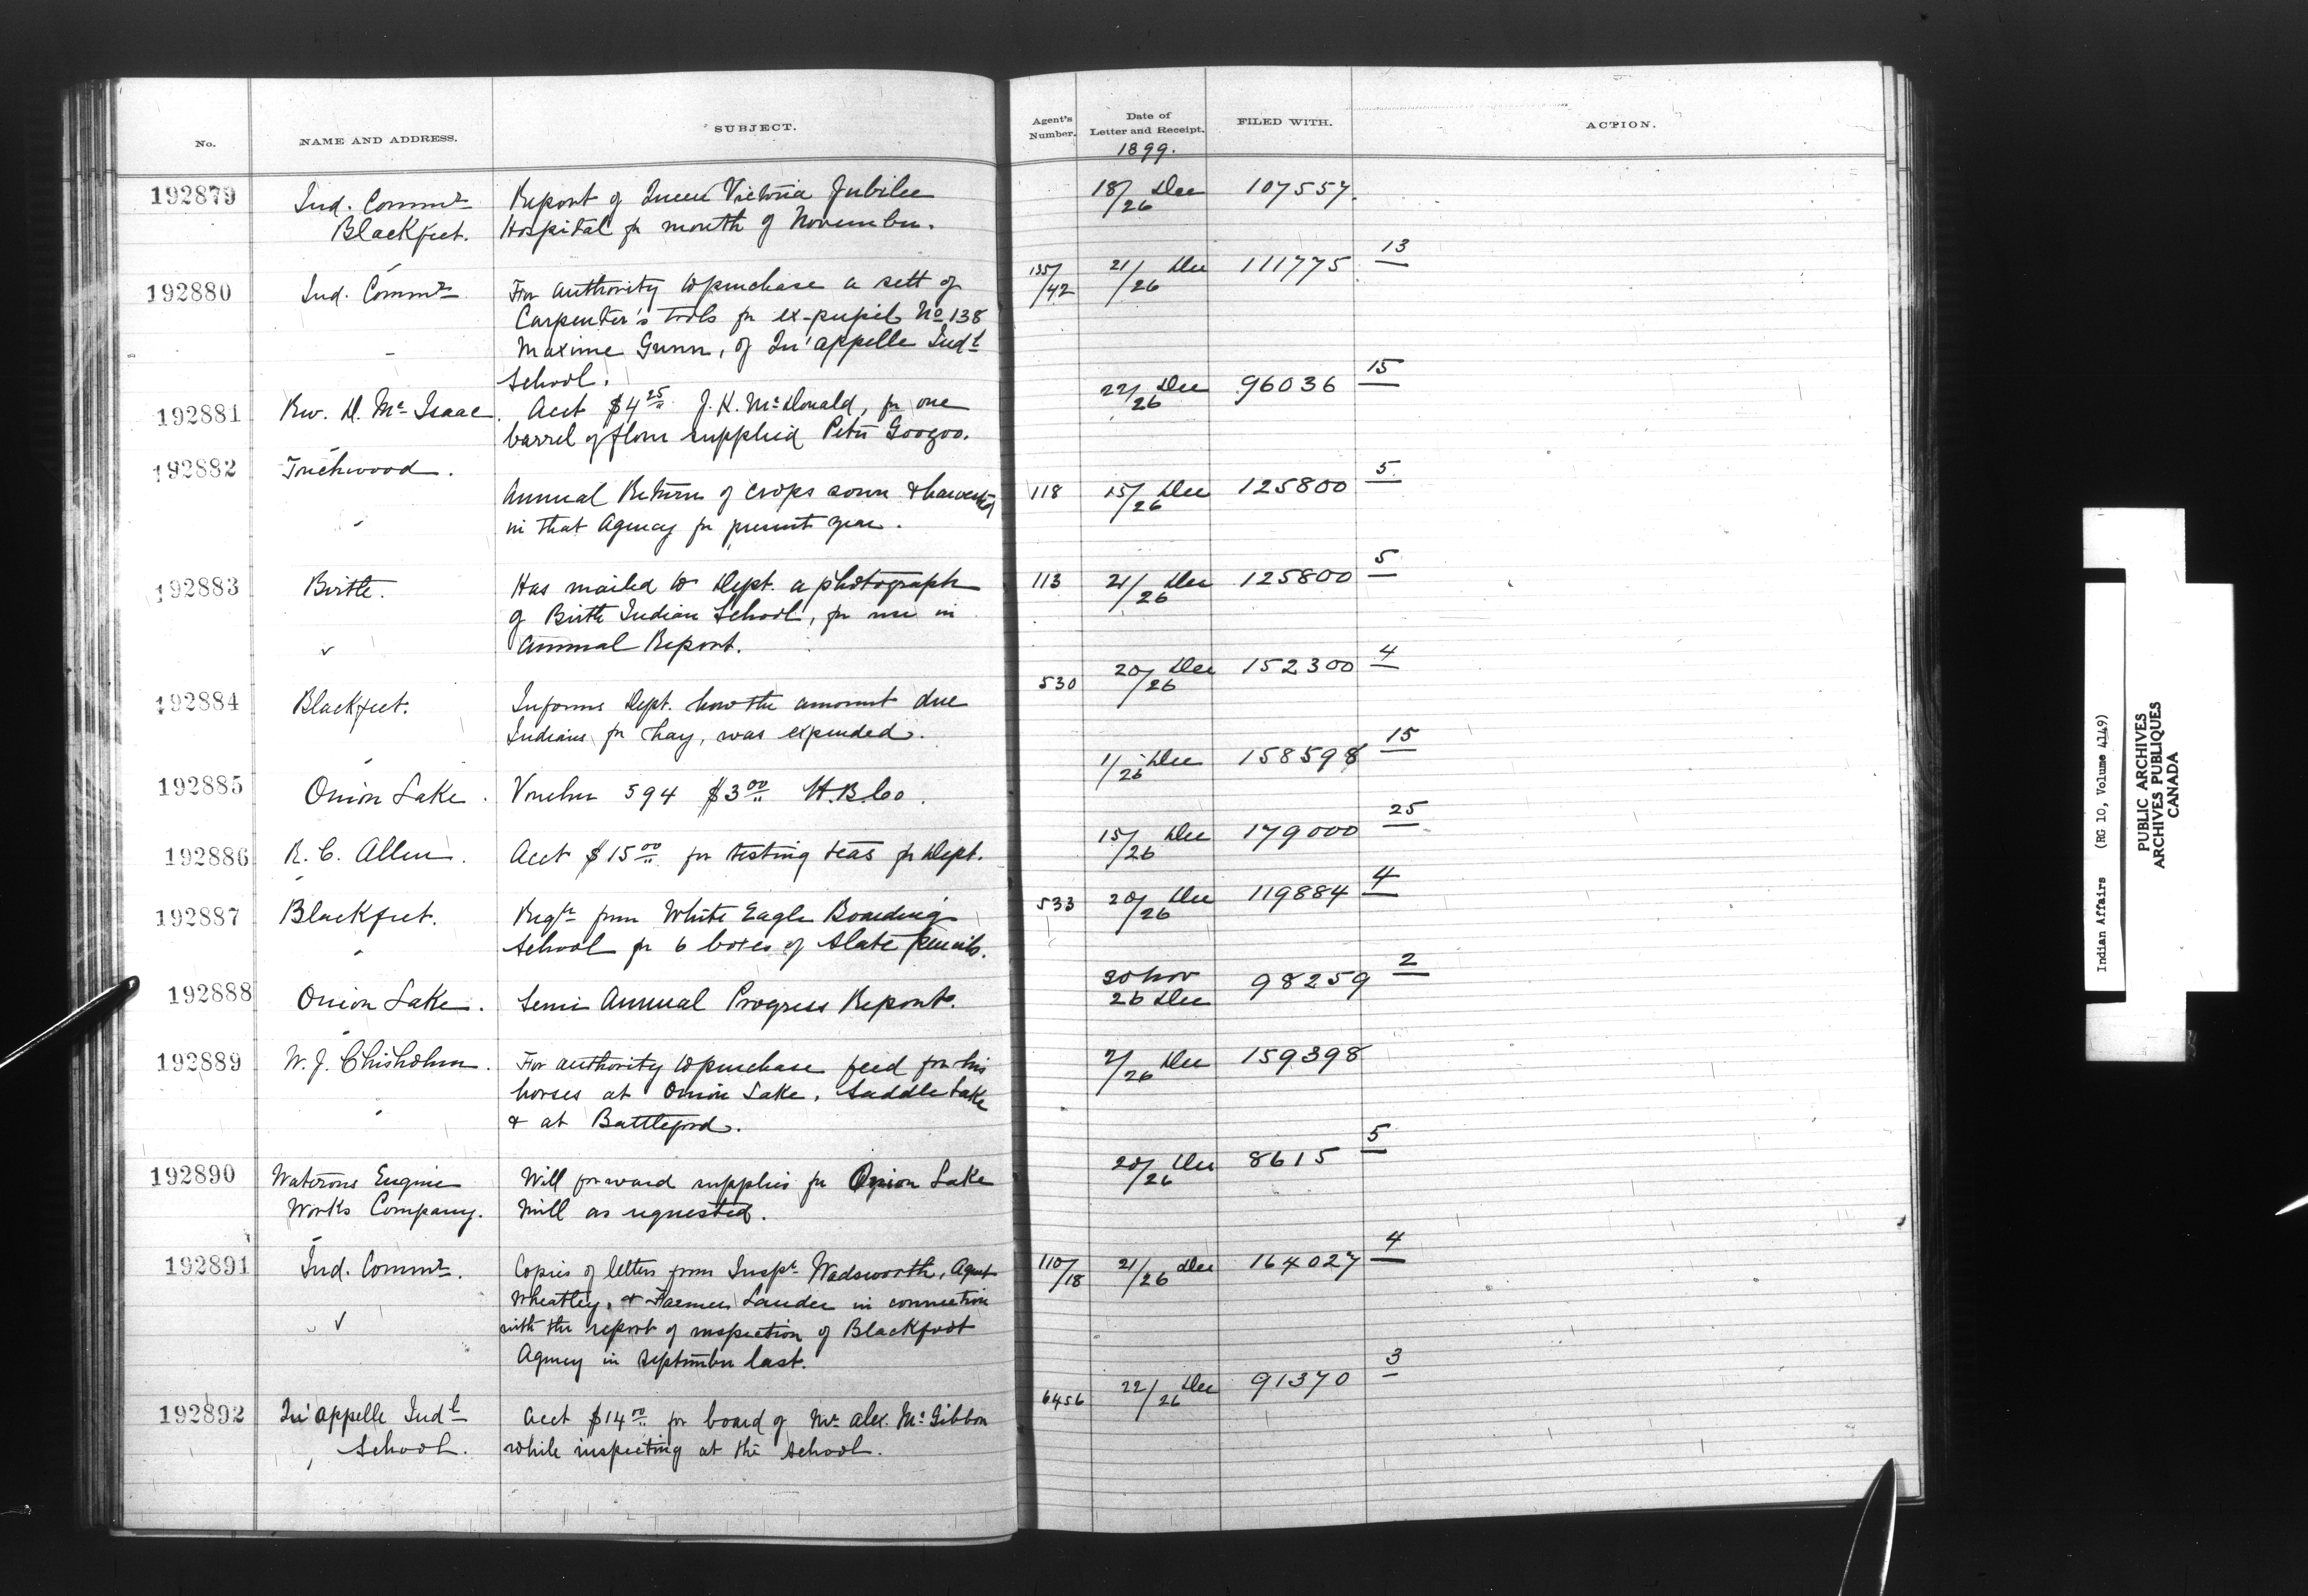 No. NAME AND ADDRESS. SUBJECT. Agent's Number. Date of Letter and Receipt. FILED WITH. ACTION.
1899.
192879 Ind. Commr Report of Queen Victoria Jubilee 18/26 Dec 107557.
Blackfeet. Hospital for month of November.
192880 Ind. Commr For authority to purchase a sett of 135/42 21/26 Dec 111775 13
Carpenter's tools for ex-pupil No 138
Maxime Gunn, of Qu'appelle Indl
School.
192881 Rev. D. McIsaac. Acct $4 25 J. K. McDonald, for one 22/26 Dec 96036 15
barrel of flour supplied Peter Googoo.
192882 Touchwood.
Annual Return of crops sown & harvested 118 15/26 Dec 125800 5
in that Agency for present year.
192883 Birtle. Has mailed to Dept. a photograph 113 21/26 Dec 125800 5
of Birtle Indian School, for use in
Annual Report.
192884 Blackfeet. Informs Dept. how the amount due 530 20/26 Dec 152300 4
Indians for hay, was expended.
192885 Onion Lake. Voucher 594 $3 00 H.B.Co. 1/26 Dec 158598 15
192886 R. C. Allen. Acct $15 00 for testing teas for Dept. 15/26 Dec 179000 25
192887 Blackfeet. Reqn from White Eagle Boarding 533 20/26 Dec 119884 4
School for 6 boxes of slate pencils.
192888 Onion Lake. Semi Annual Progress Report. 30 Nov 26 Dec 98259 2
192889 W. J. Chisholm. For authority to purchase feed for his 7/26 Dec 159398
horses at Onion Lake, Saddle Lake
& at Battleford.
192890 Waterous Engine Will forward supplies for Onion Lake 20/26 Dec 8615 5
Works Company. Mill as requested.
192891 Ind. Commr. Copies of letters from Inspr Wadsworth, Agent 110/18 21/26 Dec 164027 4
Wheatley, & Farmer Lauder in connection
with the report of inspection of Blackfoot
Agency in September last.
192892 Qu'appelle Indl Acct $14 00 for board of Mr Alex. McGibbon 6456 22/26 Dec 91370 3
School. while inspecting at the school.
Indian Affairs (RG 10, Volume 4149)
PUBLIC ARCHIVES
ARCHIVES PUBLIQUES
CANADA